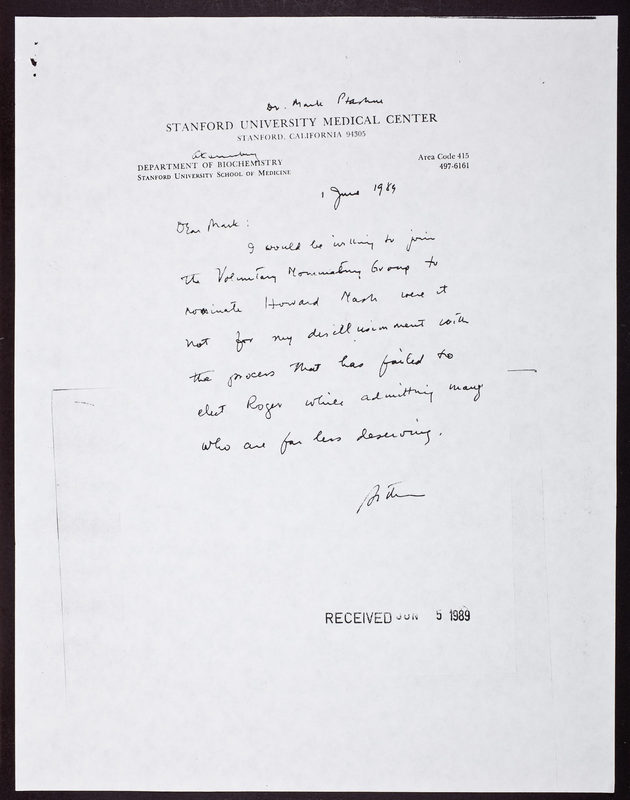 Dr. Mark Ptashne
STANFORD UNIVERSITY MEDICAL CENTER
STANFORD, CALIFORNIA 94305
A Kornberg
DEPARTMENT OF BIOCHEMISTRY
STANFORD UNIVERSITY SCHOOL OF MEDICINE
Area Code 415
497-6161
1 June 1989
Dear Mark:
I would be willing to join
the Voluntary Nominating Group to
nominate Howard Nash were it
not for my disillusionment with
the process that has failed to
elect Roger while admitting many
who are far less deserving.
Arthur
RECEIVED JUN 5 1989